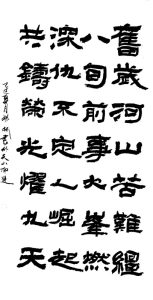 舊歲河山苦難纏
八旬前事火峯燃
深仇不人崛起
共鑄榮光耀九天
乙巳夏月